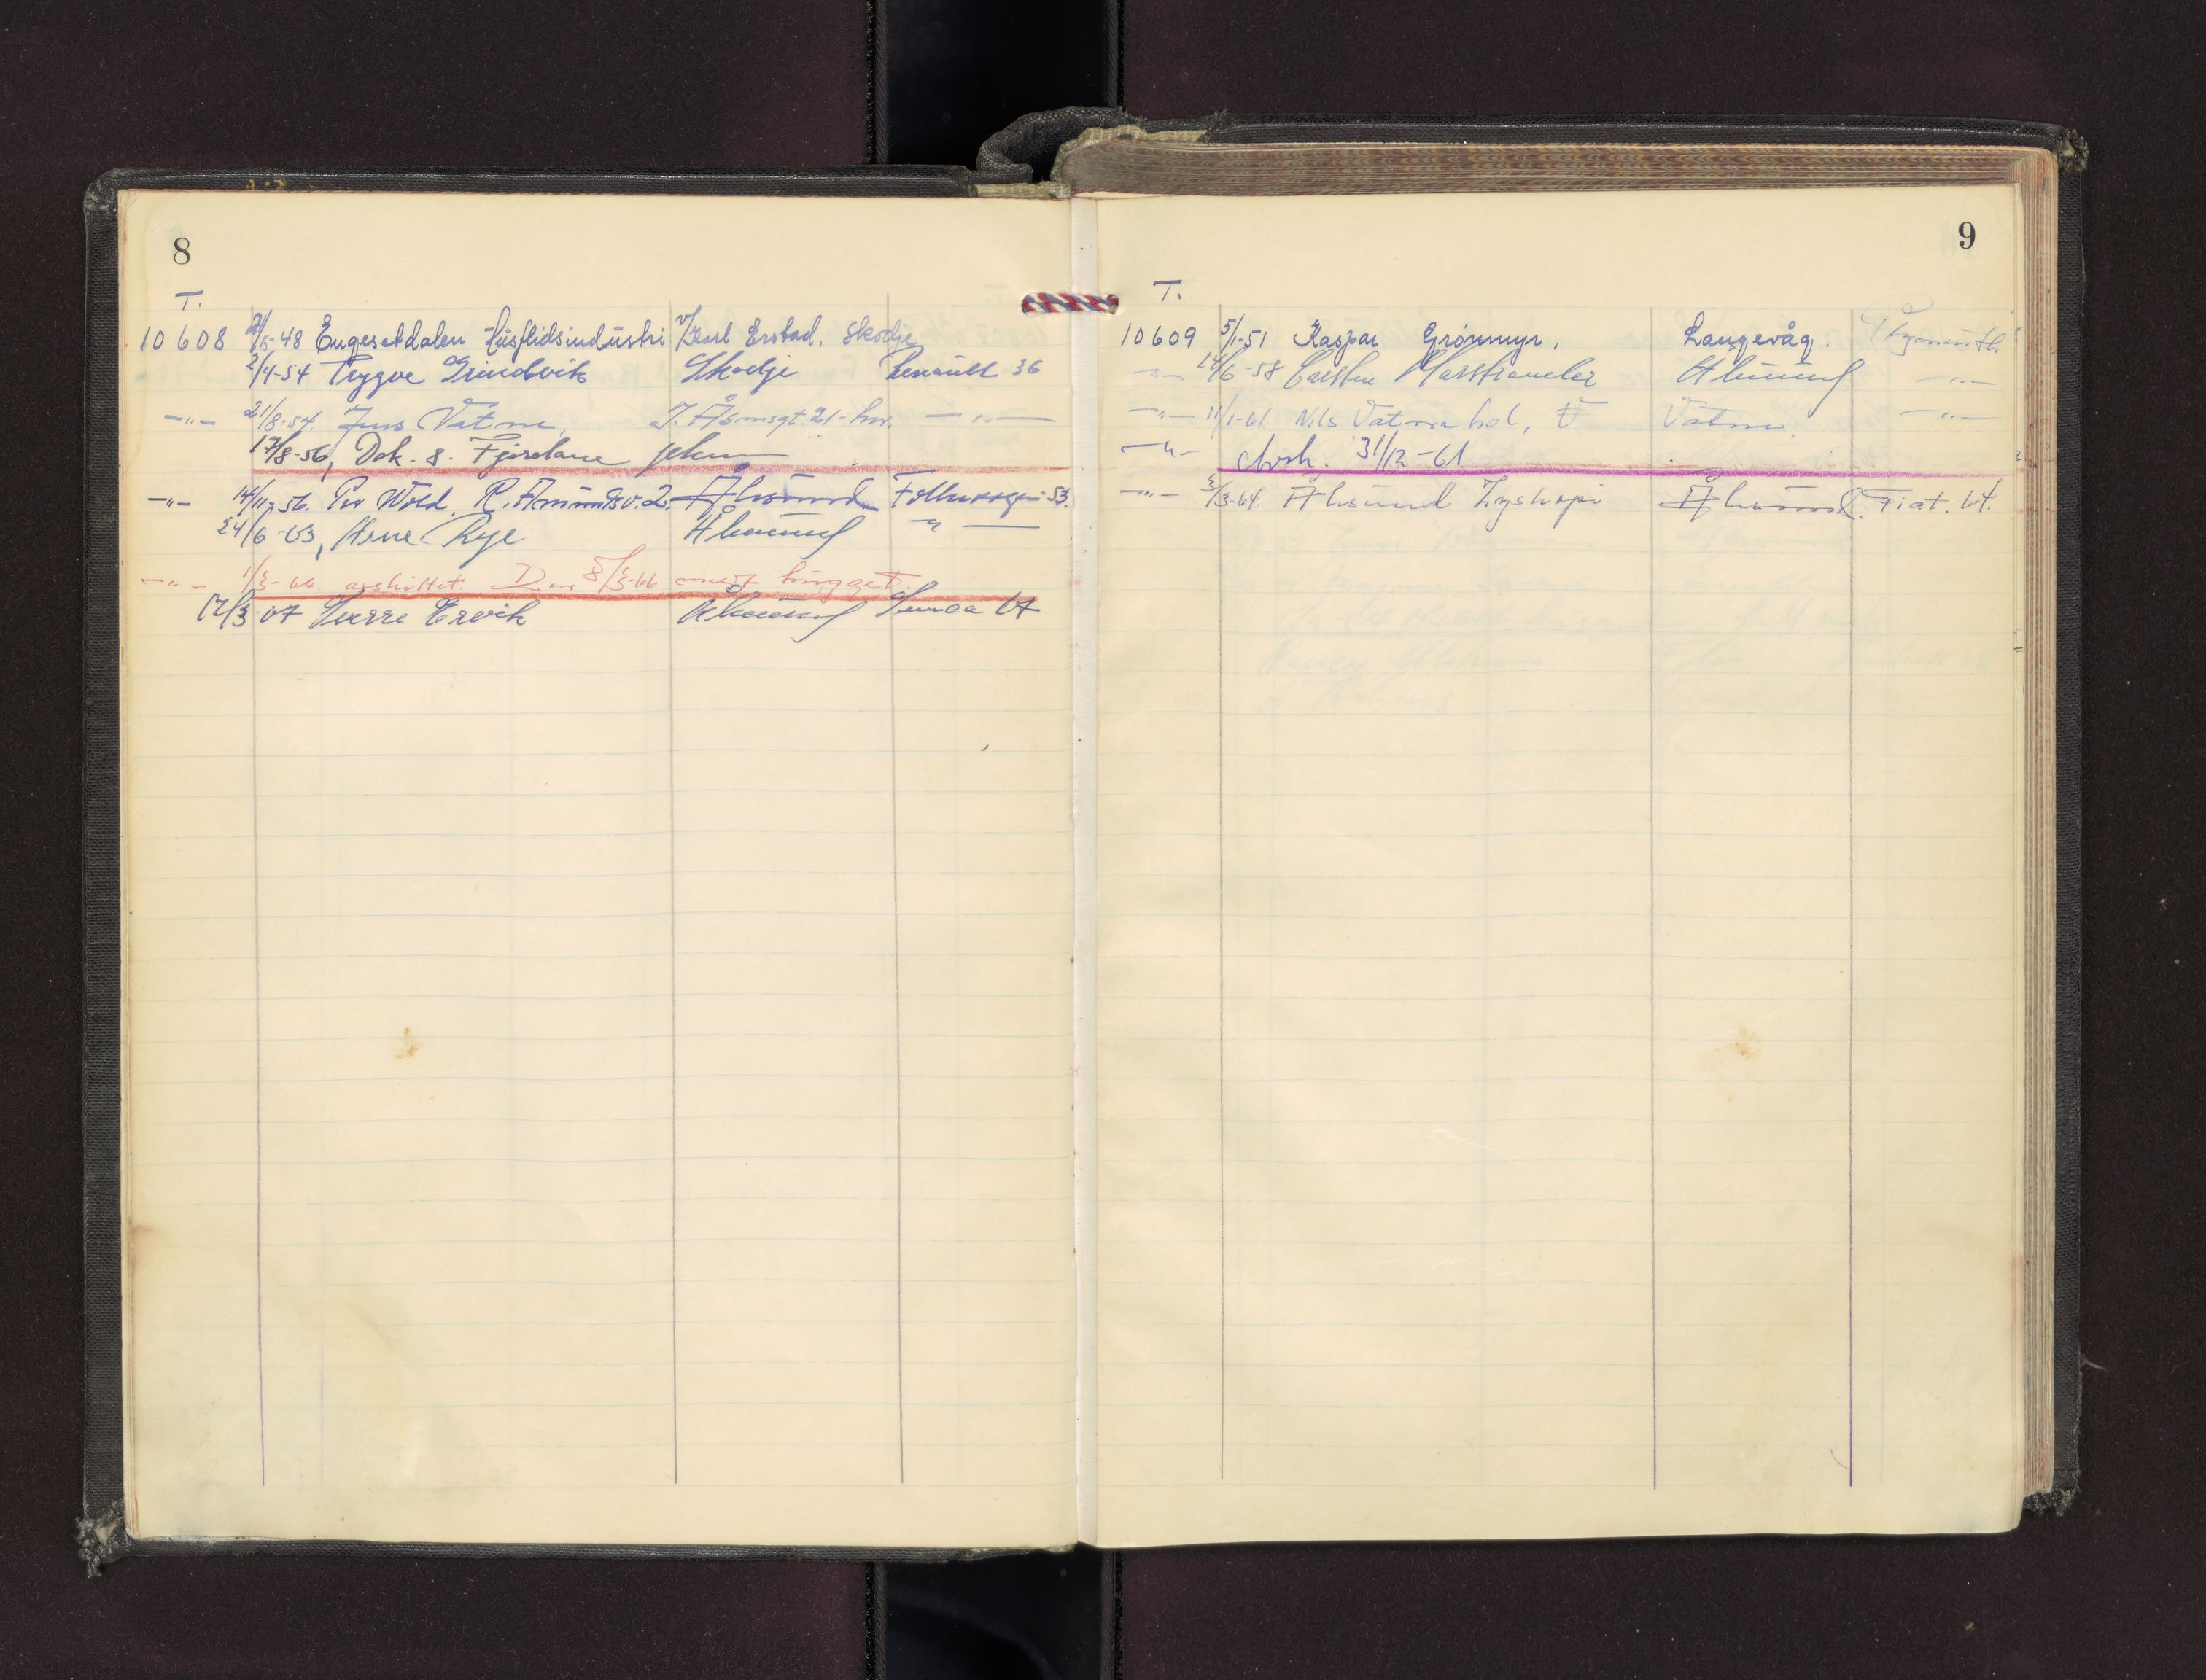 8
T.
10608 2/5-48 Engesetdalen Husflidsindustri v/Karl Erstad, Skodje
2/4-54 Trygve Grindvik Skodje Renault 36
-"- 21/8-54. Jens Vatne, J. Åsmsgt. 21 - her. -"-
17/8-56, Dek. s. Fjordane
-"- 14/11-56. Per Wold, R. Amundsv. 2. Ålesund Folkevogn 53.
24/6-63, Arne Rye Ålesund -"-
-"- 1/3-66 avskiltet. 8/3-66 hugget.
17/3 67 Sverre Ervik Ålesund Simca 67
9
T.
10609 5/1-51 Kaspar Grønmyr, Langevåg.
-"- 14/6-58 Carsten Marstrander Ålesund -"-
-"- 11/1-61 Nils Vatnehol, Vatne. -"-
-"- Avsk. 31/12-61
-"- 3/3-64. Ålesund Lyskopi Ålesund. Fiat. 64.